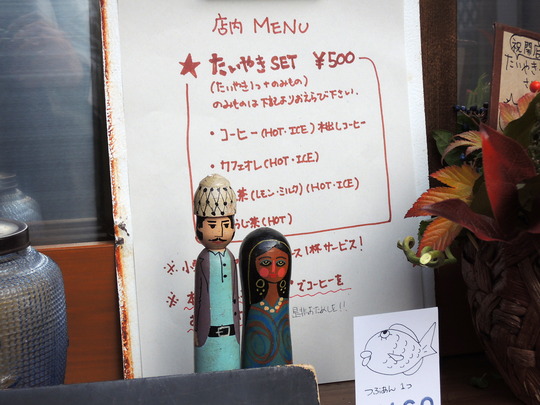 店内 MENU
★ たいやき SET ¥500
(たいやき1つ+のみもの)
のみものは下記よりおえらび下さい.
・コーヒー(HOT・ICE) 水出しコーヒー
・カフェオレ(HOT・ICE)
茶(レモン・ミルク)(HOT・ICE)
じ茶(HOT)
※. 小
ス1杯サービス!
※
でコーヒーを
是非おためしを!!
祝開店
たいやき
さ
つぶあん 1つ